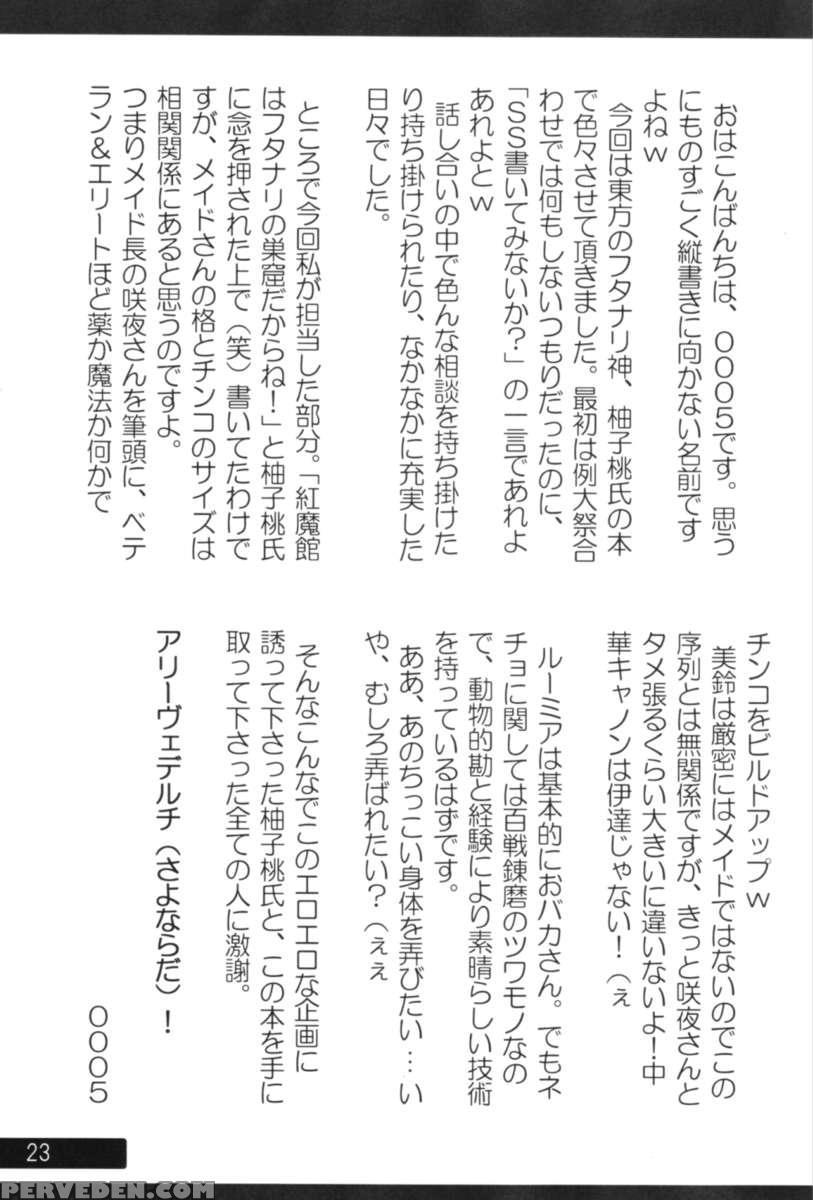 おはこんばんちは、0005です。思う
にものすごく縦書きに向かない名前です
よねw
今回は東方のフタナリ神、柚子桃氏の本
で色々させて頂きました。最初は例大祭合
わせでは何もしないつもりだったのに、
「SS書いてみないか?」の一言であれよ
あれよとw
話し合いの中で色んな相談を持ち掛けた
り持ち掛けられたり、なかなかに充実した
日々でした。
ところで今回私が担当した部分。「紅魔館
はフタナリの巣窟だからね!」と柚子桃氏
に念を押された上で(笑)書いてたわけで
すが、メイドさんの格とチンコのサイズは
相関関係にあると思うのですよ。
つまりメイド長の咲夜さんを筆頭に、ベテ
ラン&エリートほど薬か魔法か何かで
チンコをビルドアップw
美鈴は厳密にはメイドではないのでこの
序列とは無関係ですが、きっと咲夜さんと
タメ張るくらい大きいに違いないよ!中
華キャノンは伊達じゃない!(ぇ
そんなこんなでこのエロエロな企画に
誘って下さった柚子桃氏と、この本を手に
取って下さった全ての人に激謝。
アリーヴェデルチ(さよならだ)!
0005
23
PERVEDEN.COM